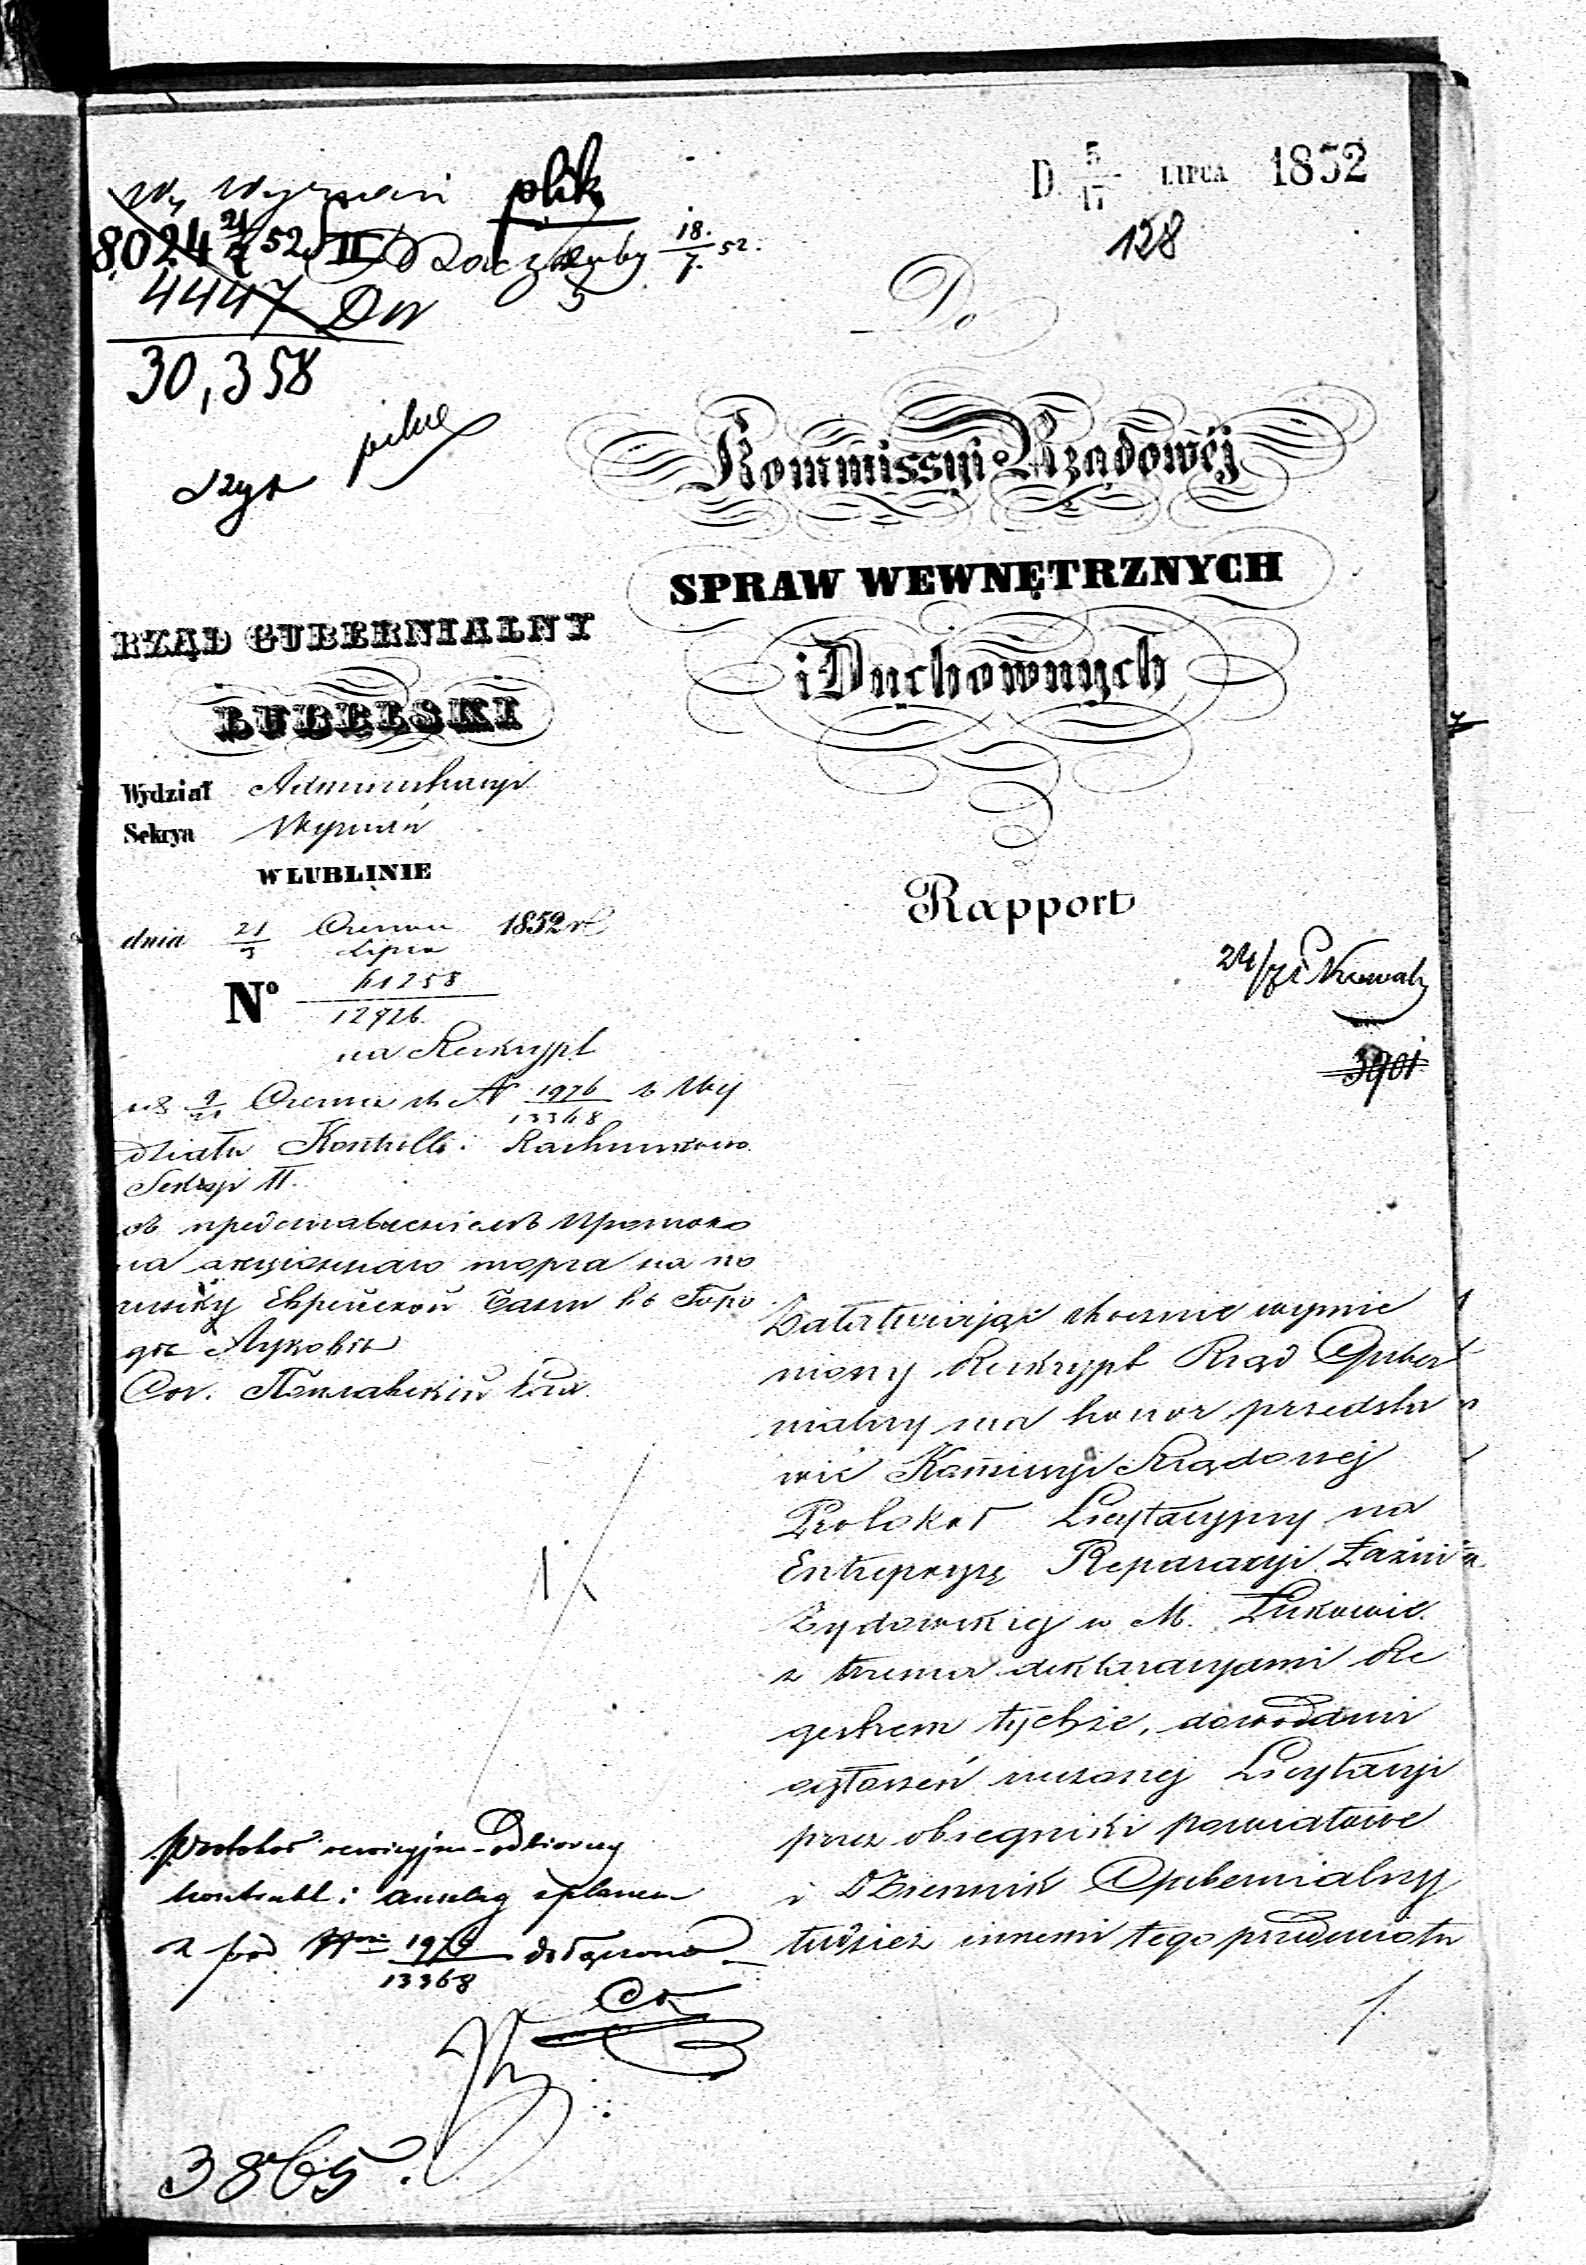 D 5/17 LIPCA 1852
128
plik
8024 21/4 52 II
18./7. 52.
4447
30,358
Do
Kommissyi Rządowéj
SPRAW WEWNĘTRZNYCH
i Duchownych
RZĄD GUBERNIALNY
LUBELSKI
Wydział Administracyi
Sekcya Wyznań
W LUBLINIE
dnia 21/3 Czerwca/Lipca 1852 r.
Nº 61258/12926
na Reskrypt
z d. 9/21 Czerwca r. b. N 1976/13368 z Wy
działu Kontrolli: Rachunkowo.
Sekcyi II.
съ представленіемъ протоко
ла акціоннаго торга на по
чинку Еврейской бани въ Горо
дѣ Луковѣ
Rapport
24/7
3901
Załatwiając obocznie wymie
niony Reskrypt Rząd Guber
nialny ma honor przedsta
wić Kommissyi Rządowej
Protokół Licytacyjny na
Entrepryzę Reparacyi Łaźni
Żydowskiej w M. Łukowie
z trzema deklaracyami Re
gestrem tychże, dowodami
ogłoszeń rzeczonej Licytacyi
przez obiegniki powiatowe
i Dziennik Gubernialny
tudzież innemi tego przedmiotu
Protokół rewizyjno-odbiorczy
kontrakt i anszlag z planem
z pod Nru 1976/13368 dołączono
3865.